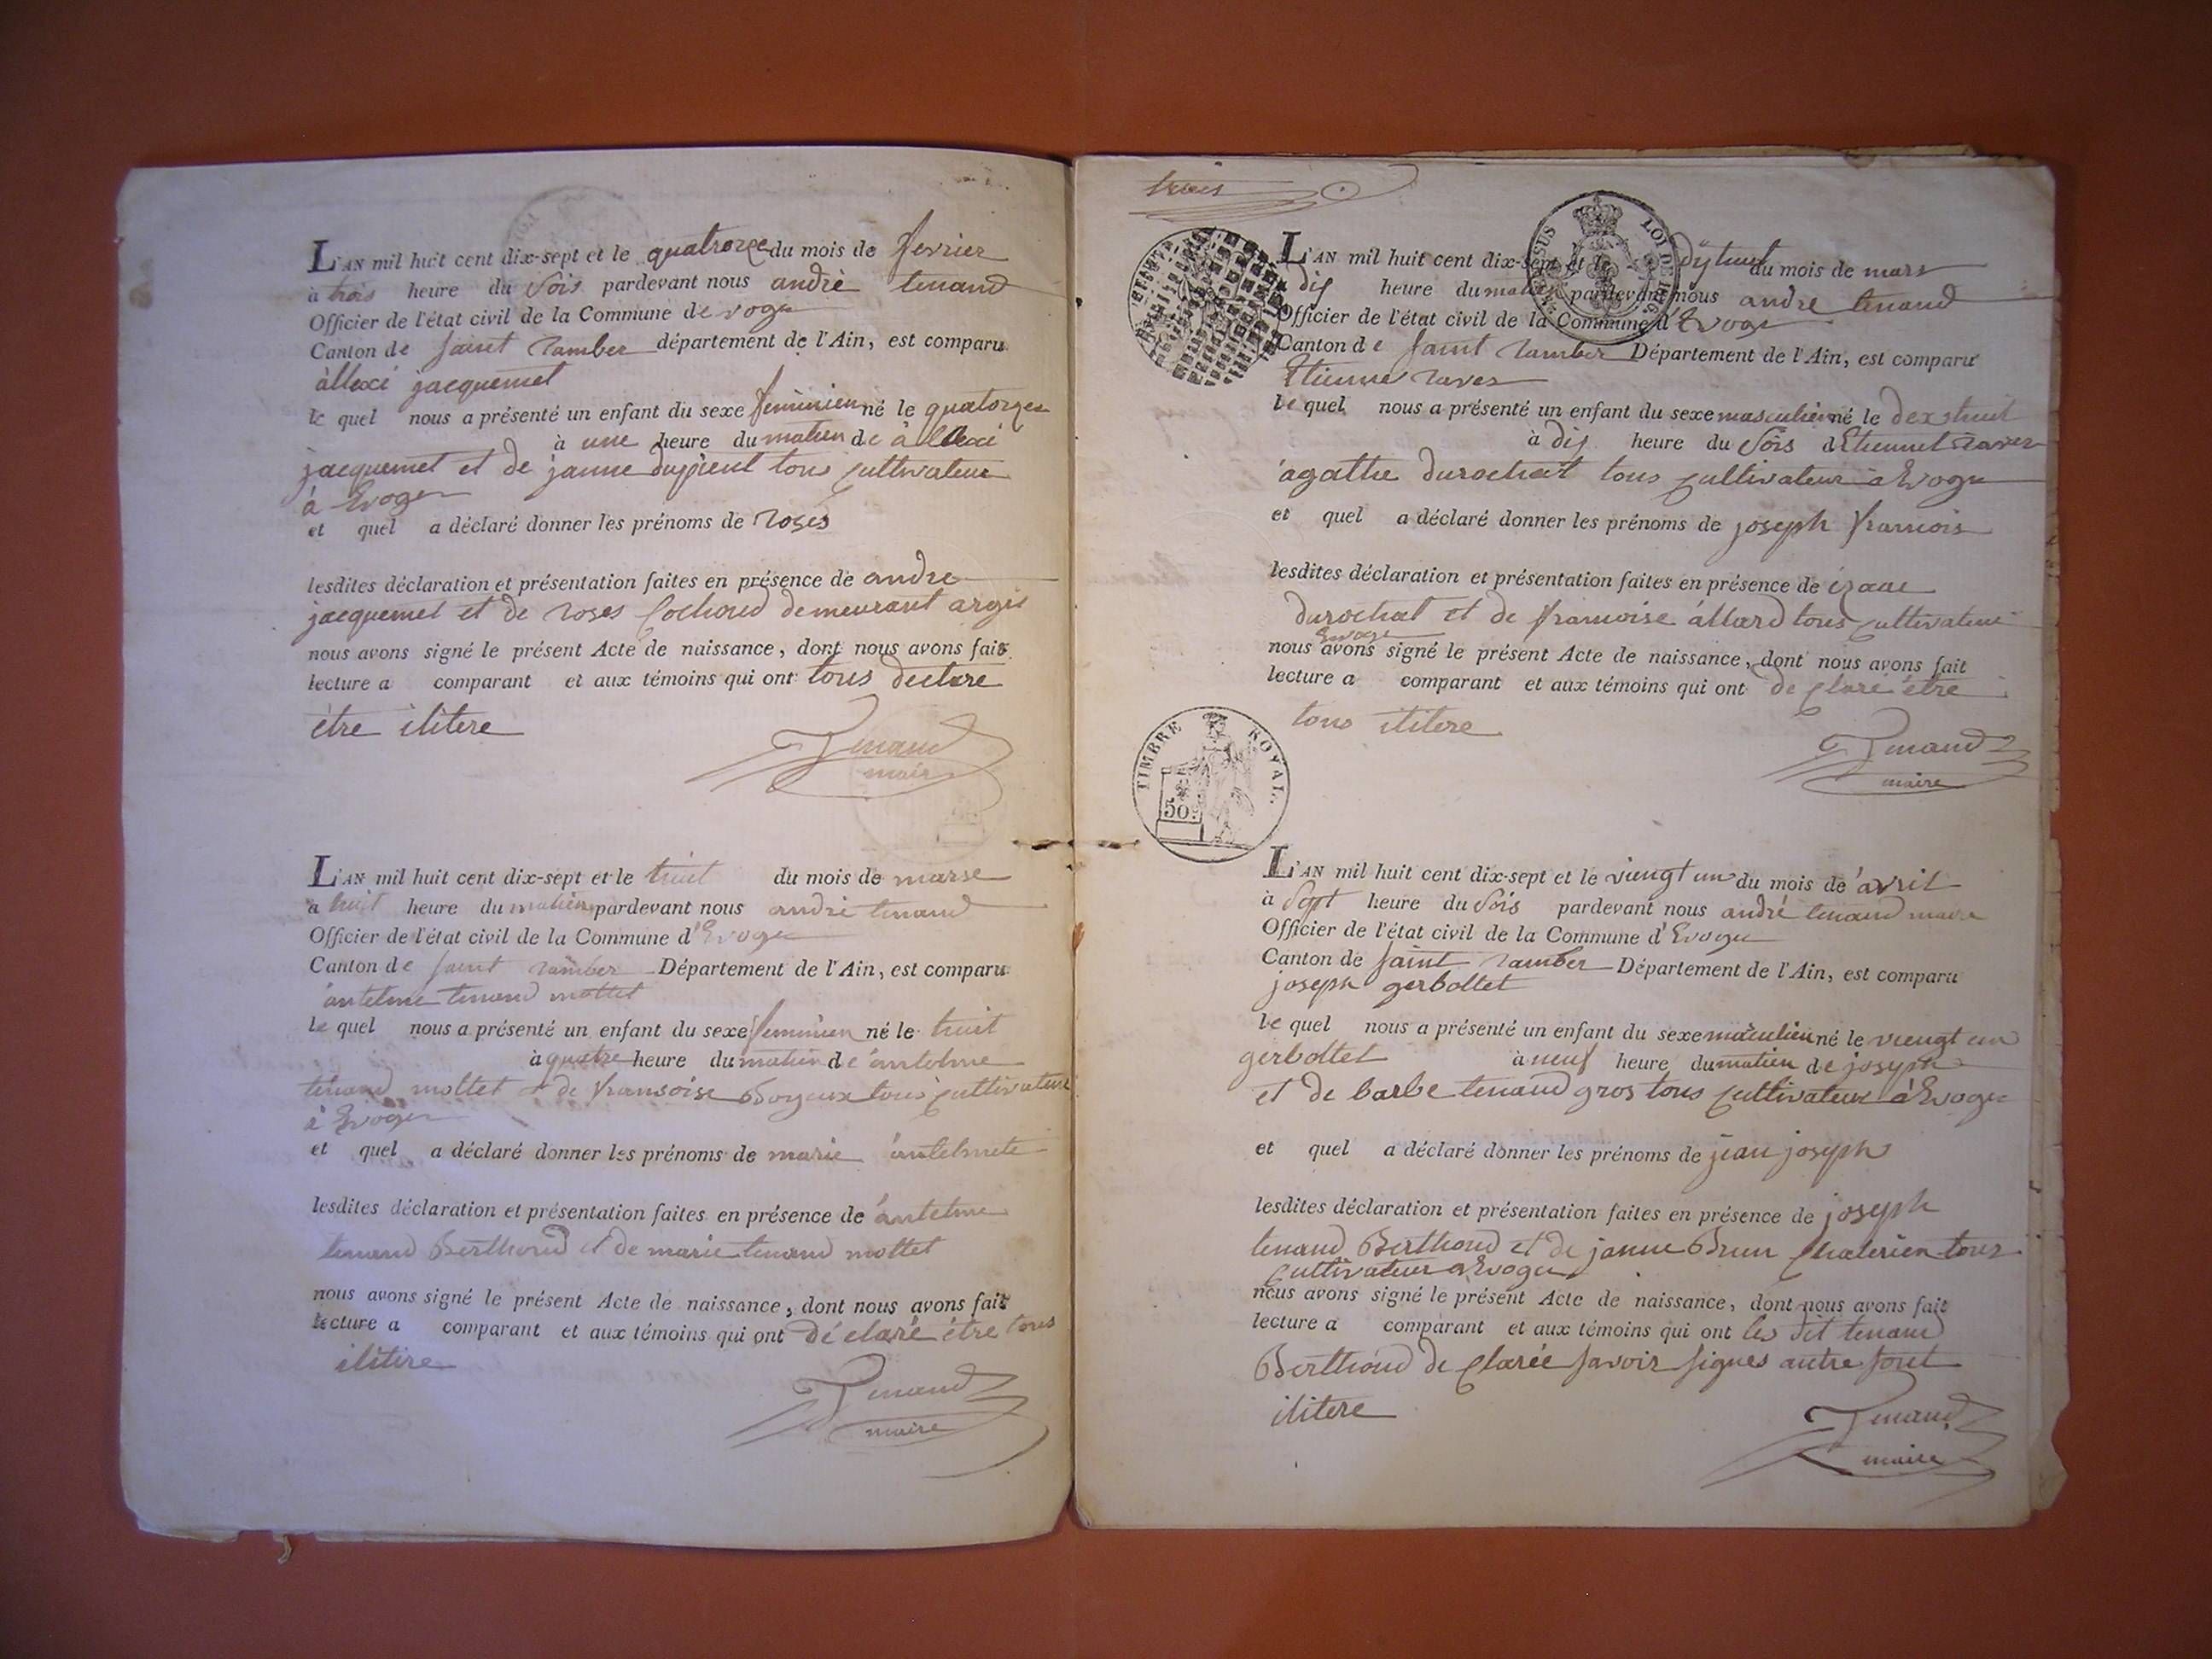 L'AN mil huit cent dix-sept et le quatrorze du mois de fevrier
à trois heure du sois pardevant nous andré tenand
Officier de l'état civil de la Commune de voge
Canton de saint ramber département de l'Ain, est comparu
àllexi jacquemet
le quel nous a présenté un enfant du sexe feminien né le quatorzes
à une heure du matien de àllexi
jacquemet et de janne tous cultivateur
à Evoges
et quel a déclaré donner les prénoms de roses
lesdites déclaration et présentation faites en présence de andre
jacquemet et de roses Cochoud demeurant argis
nous avons signé le présent Acte de naissance, dont nous avons fait
lecture a comparant et aux témoins qui ont tous declare
être ilitere
Tenand
maire
L'AN mil huit cent dix-sept et le huit du mois de marse
a huit heure du matien pardevant nous andré tenand
Officier de l'état civil de la Commune d'Evoge
Canton de saint ramber Département de l'Ain, est comparu
antelme tenand mottet
le quel nous a présenté un enfant du sexe feminien né le huit
à quatre heure du matien de antelme
tenand mottet et de fransoise Boyeux tous cultivateur
à Evoges
et quel a déclaré donner les prénoms de marie antelmete
lesdites déclaration et présentation faites en présence de antelme
tenand Berthoud et de marie tenand mottet
nous avons signé le présent Acte de naissance, dont nous avons fait
lecture a comparant et aux témoins qui ont déclaré être tous
ilitire
Tenand
maire
trois
L'AN mil huit cent dix-sept et le dixhuit du mois de mars
dis heure du matien pardevant nous andre tenand
Officier de l'état civil de la Commune d'Evoge
Canton de saint ramber Département de l'Ain, est comparu
Etienne ravet
le quel nous a présenté un enfant du sexe masculien né le
à dis heure du sois d'Etienne ravet
agathe durochat tous cultivateur à Evoge
et quel a déclaré donner les prénoms de joseph francois
lesdites déclaration et présentation faites en présence de izaac
durochat et de francoise àllard tous cultivateur
Evoge
nous avons signé le présent Acte de naissance, dont nous avons fait
lecture a comparant et aux témoins qui ont declaré être
tous ilitere
Tenand
maire
TIMBRE ROYAL.
50
L'AN mil huit cent dix-sept et le viengt un du mois de avril
à sept heure du sois pardevant nous andré tenand maire
Officier de l'état civil de la Commune d'Evoge
Canton de saint ramber Département de l'Ain, est comparu
joseph gerbottet
le quel nous a présenté un enfant du sexe masculien né le viengt un
gerbottet à neuf heure du matien de joseph
et de barbe tenand gros tous cultivateur à Evoge
et quel a déclaré donner les prénoms de jean joseph
lesdites déclaration et présentation faites en présence de joseph
tenand Berthoud et de janne Brun tous
cultivateur a Evoge
nous avons signé le présent Acte de naissance, dont nous avons fait
lecture a comparant et aux témoins qui ont les dit tenand
Berthoud de clarée savoir signes autre sont
ilitere
Tenand
maire